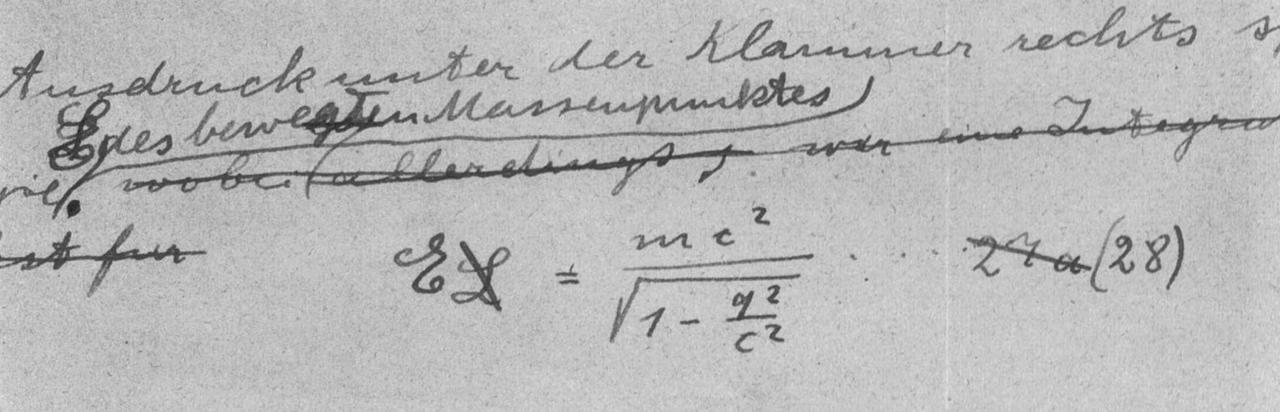 Ausdruck unter der Klammer rechts
L des bewegten Massenpunktes)
wobei (allerdings, wir eine Integra
ist für
E L = mc² / √(1 - q²/c²) . . . 27a (28)